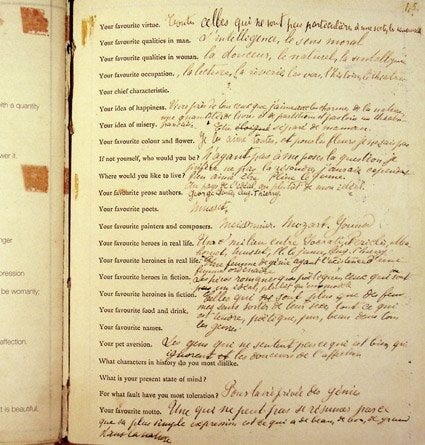 145.
Your favourite virtue. Toutes celles qui ne sont pas particulières à une secte, les universelles
Your favourite qualities in man. L'intelligence, le sens moral
Your favourite qualities in woman. La douceur, le naturel, l'intelligence
Your favourite occupation. La lecture, la rêverie, les vers, l'histoire, le théâtre
Your chief characteristic.
Your idea of happiness. Vivre près de tous ceux que j'aime avec les charmes de la nature
une quantité de livres et de partitions, et pas loin un théâtre
français.
Your idea of misery. Etre séparé de maman.
Your favourite colour and flower. Je les aime toutes, et pour les fleurs je ne sais pas
If not yourself, who would you be? N'ayant pas à me poser la question je
préfère ne pas la résoudre j'aurais cependant
bien aimé être Pline le jeune.
Where would you like to live? Au pays de l'idéal ou plutôt de mon idéal.
Your favourite prose authors. George Sand, Aug. Thierry.
Your favourite poets. Musset.
Your favourite painters and composers. Meissonier. Mozart, Gounod
Your favourite heroes in real life. Un milieu entre Socrate, Périclès, Mahomet, Musset, Pline le jeune, Aug. Thierry
Your favourite heroines in real life. Une femme de génie ayant l'existence d'une
femme ordinaire
Your favourite heroes in fiction. Les héros romanesques poétiques, ceux qui sont
un idéal plutôt qu'un modèle
Your favourite heroines in fiction. Celles qui sont plus que des femmes
sans sortir de leur sexe, tout ce qui
Your favourite food and drink. est tendre, poétique, pur, beau dans tous
les genres.
Your favourite names.
Your pet aversion. Les gens qui ne sentent pas ce qui est bien, qui
ignorent les douceurs de l'affection
What characters in history do you most dislike.
What is your present state of mind?
For what fault have you most toleration? Pour la vie privée des génies
Your favourite motto. Une qui ne peut pas se résumer parce
que sa plus simple expression est ce qui a de beau, de bon, de grand
dans la nature
th a quantity
ver it.
nger
pression
be womanly;
affection.
t is beautiful,